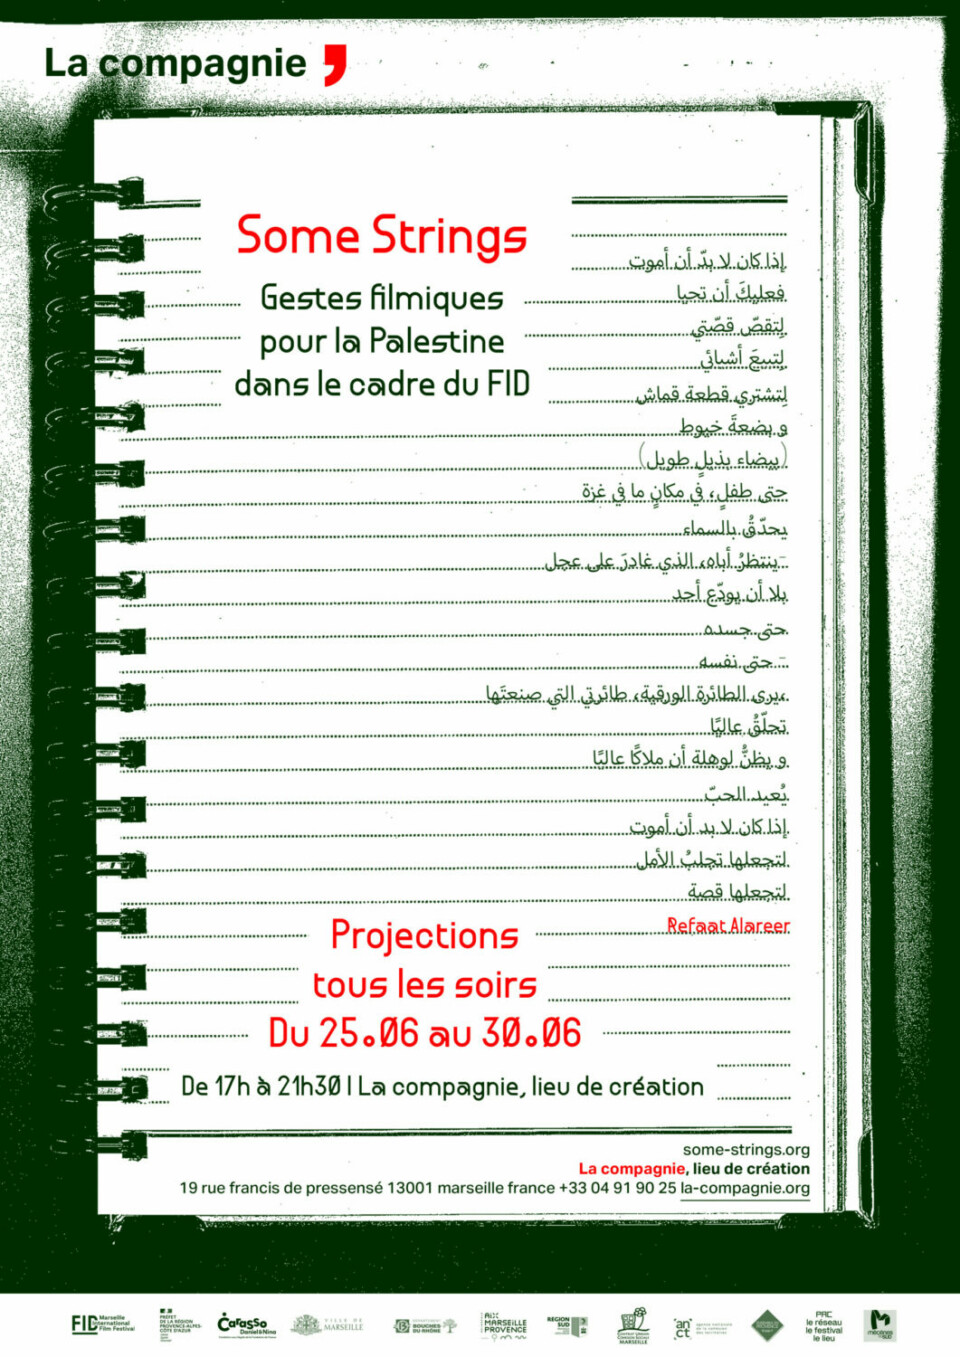 La compagnie,
Some Strings
Gestes filmiques
pour la Palestine
dans le cadre du FID
إذا كان لا بدّ أن أموت
فعليكَ أن تحيا
لِتقصّ قصّتي
لِتبيعَ أشيائي
لِتشتري قطعة قماش
و بضعةَ خيوط
(بيضاء بذيلٍ طويل)
حتى طفلٍ، في مكانٍ ما في غزة
يحدّقُ بالسماء
-ينتظرُ أباه، الذي غادرَ على عجل
بلا أن يودّع أحد
حتى جسده
- حتى نفسه
،يرى الطائرة الورقية، طائرتي التي صنعتَها
تحلّقُ عاليًا
و يظنُّ لوهلة أن ملاكًا عاليًا
يُعيد الحبّ
إذا كان لا بد أن أموت
لتجعلها تجلبُ الأمل
لتجعلها قصة
Refaat Alareer
Projections
tous les soirs
Du 25.06 au 30.06
De 17h à 21h30 | La compagnie, lieu de création
some-strings.org
La compagnie, lieu de création
19 rue francis de pressensé 13001 marseille france +33 04 91 90 25 la-compagnie.org
FID Marseille International Film Festival
PRÉFET DE LA RÉGION PROVENCE-ALPES-CÔTE D'AZUR
Carasso Daniel & Nina
VILLE DE MARSEILLE
BOUCHES-DU-RHÔNE
AIX MARSEILLE PROVENCE
RÉGION SUD
MARSEILLE
anct
PAC le réseau le festival le lieu
mécènes du sud